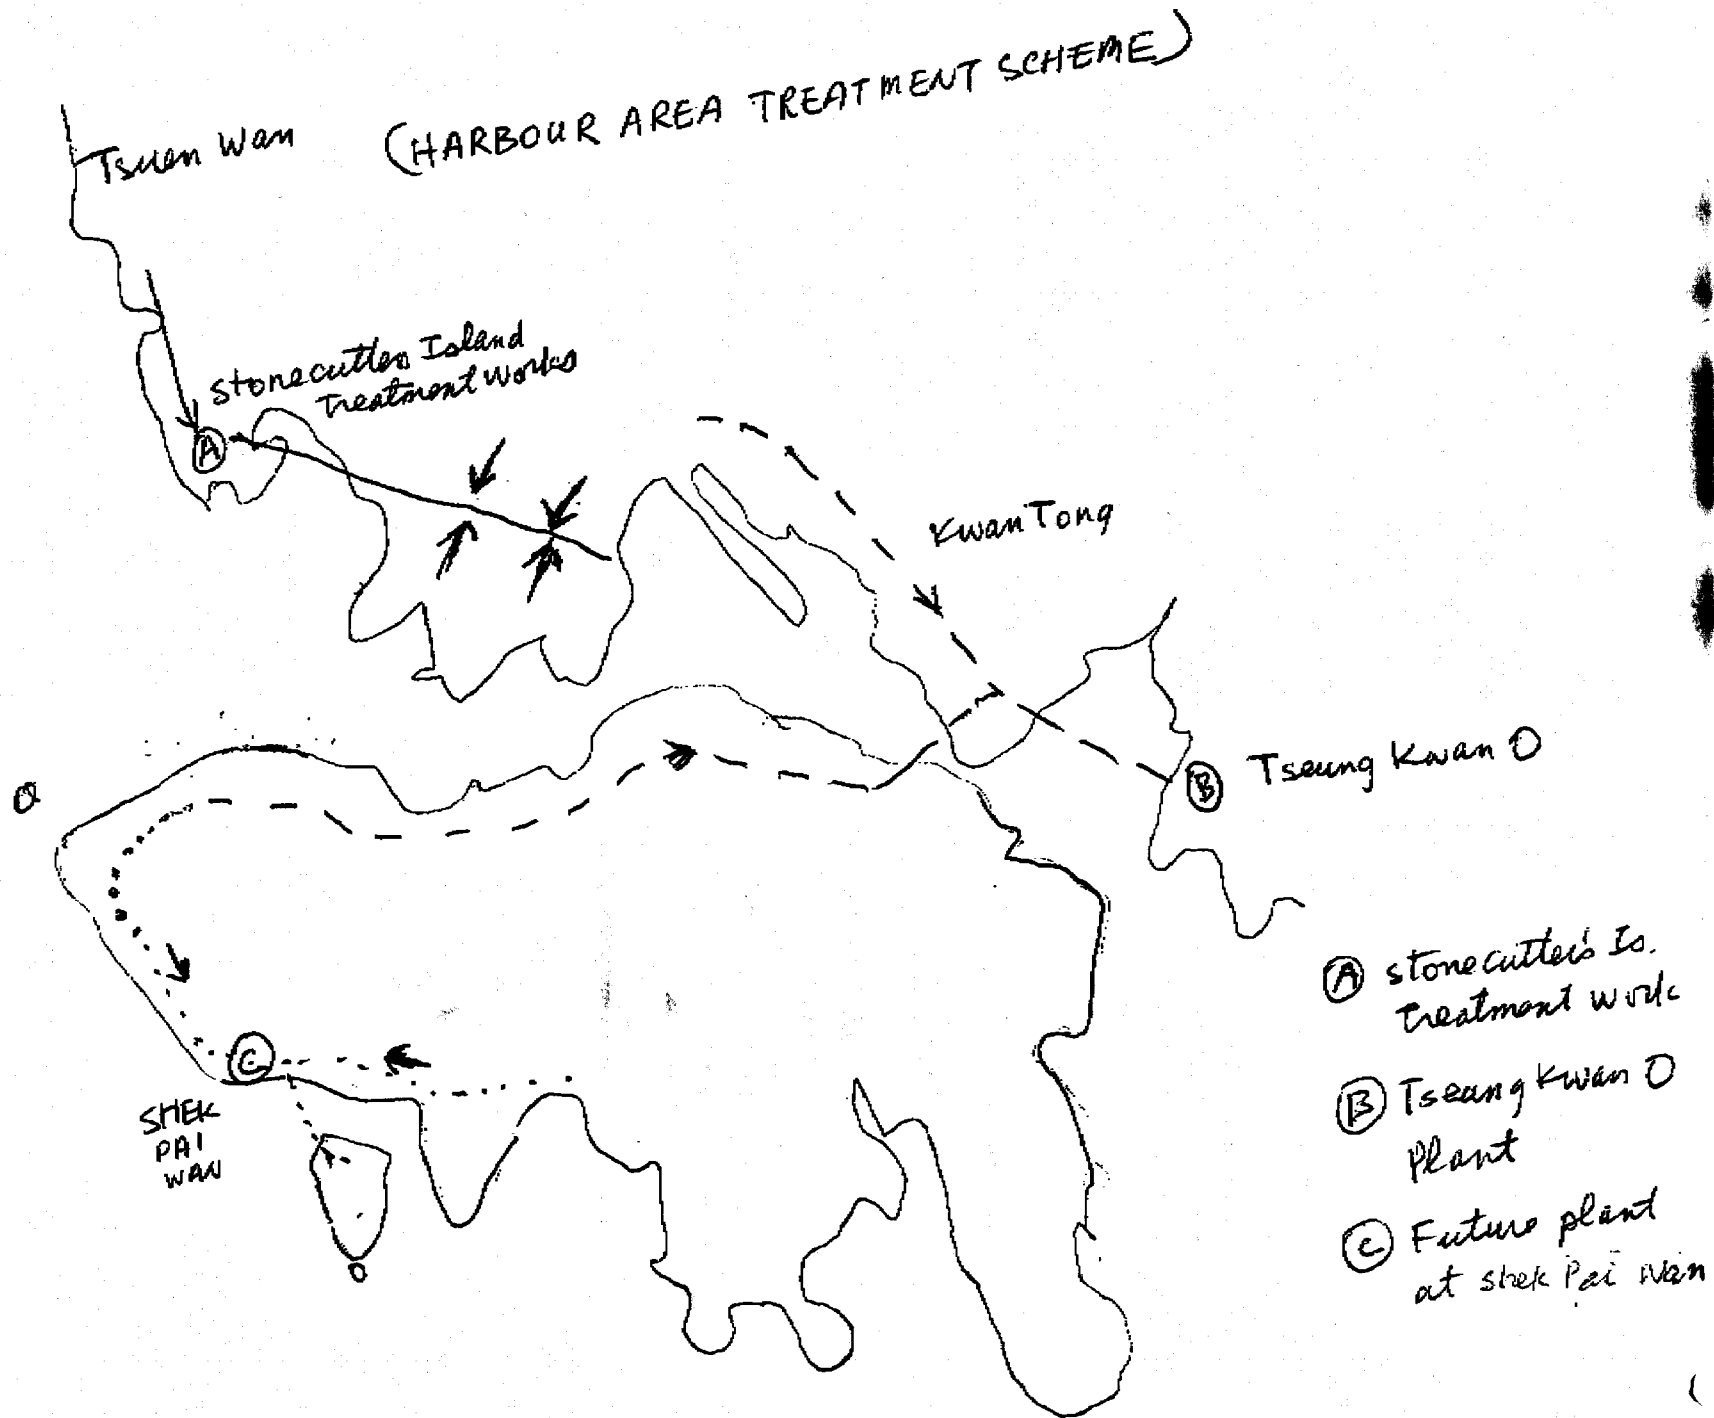 (HARBOUR AREA TREATMENT SCHEME)
Tsuen Wan
Stonecutters Island
Treatment Works
A
Kwan Tong
B
Tseung Kwan O
C
SHEK
PAI
WAN
A Stonecutter's Is.
Treatment Work
B Tseang Kwan O
Plant
C Future plant
at Shek Pai Wan